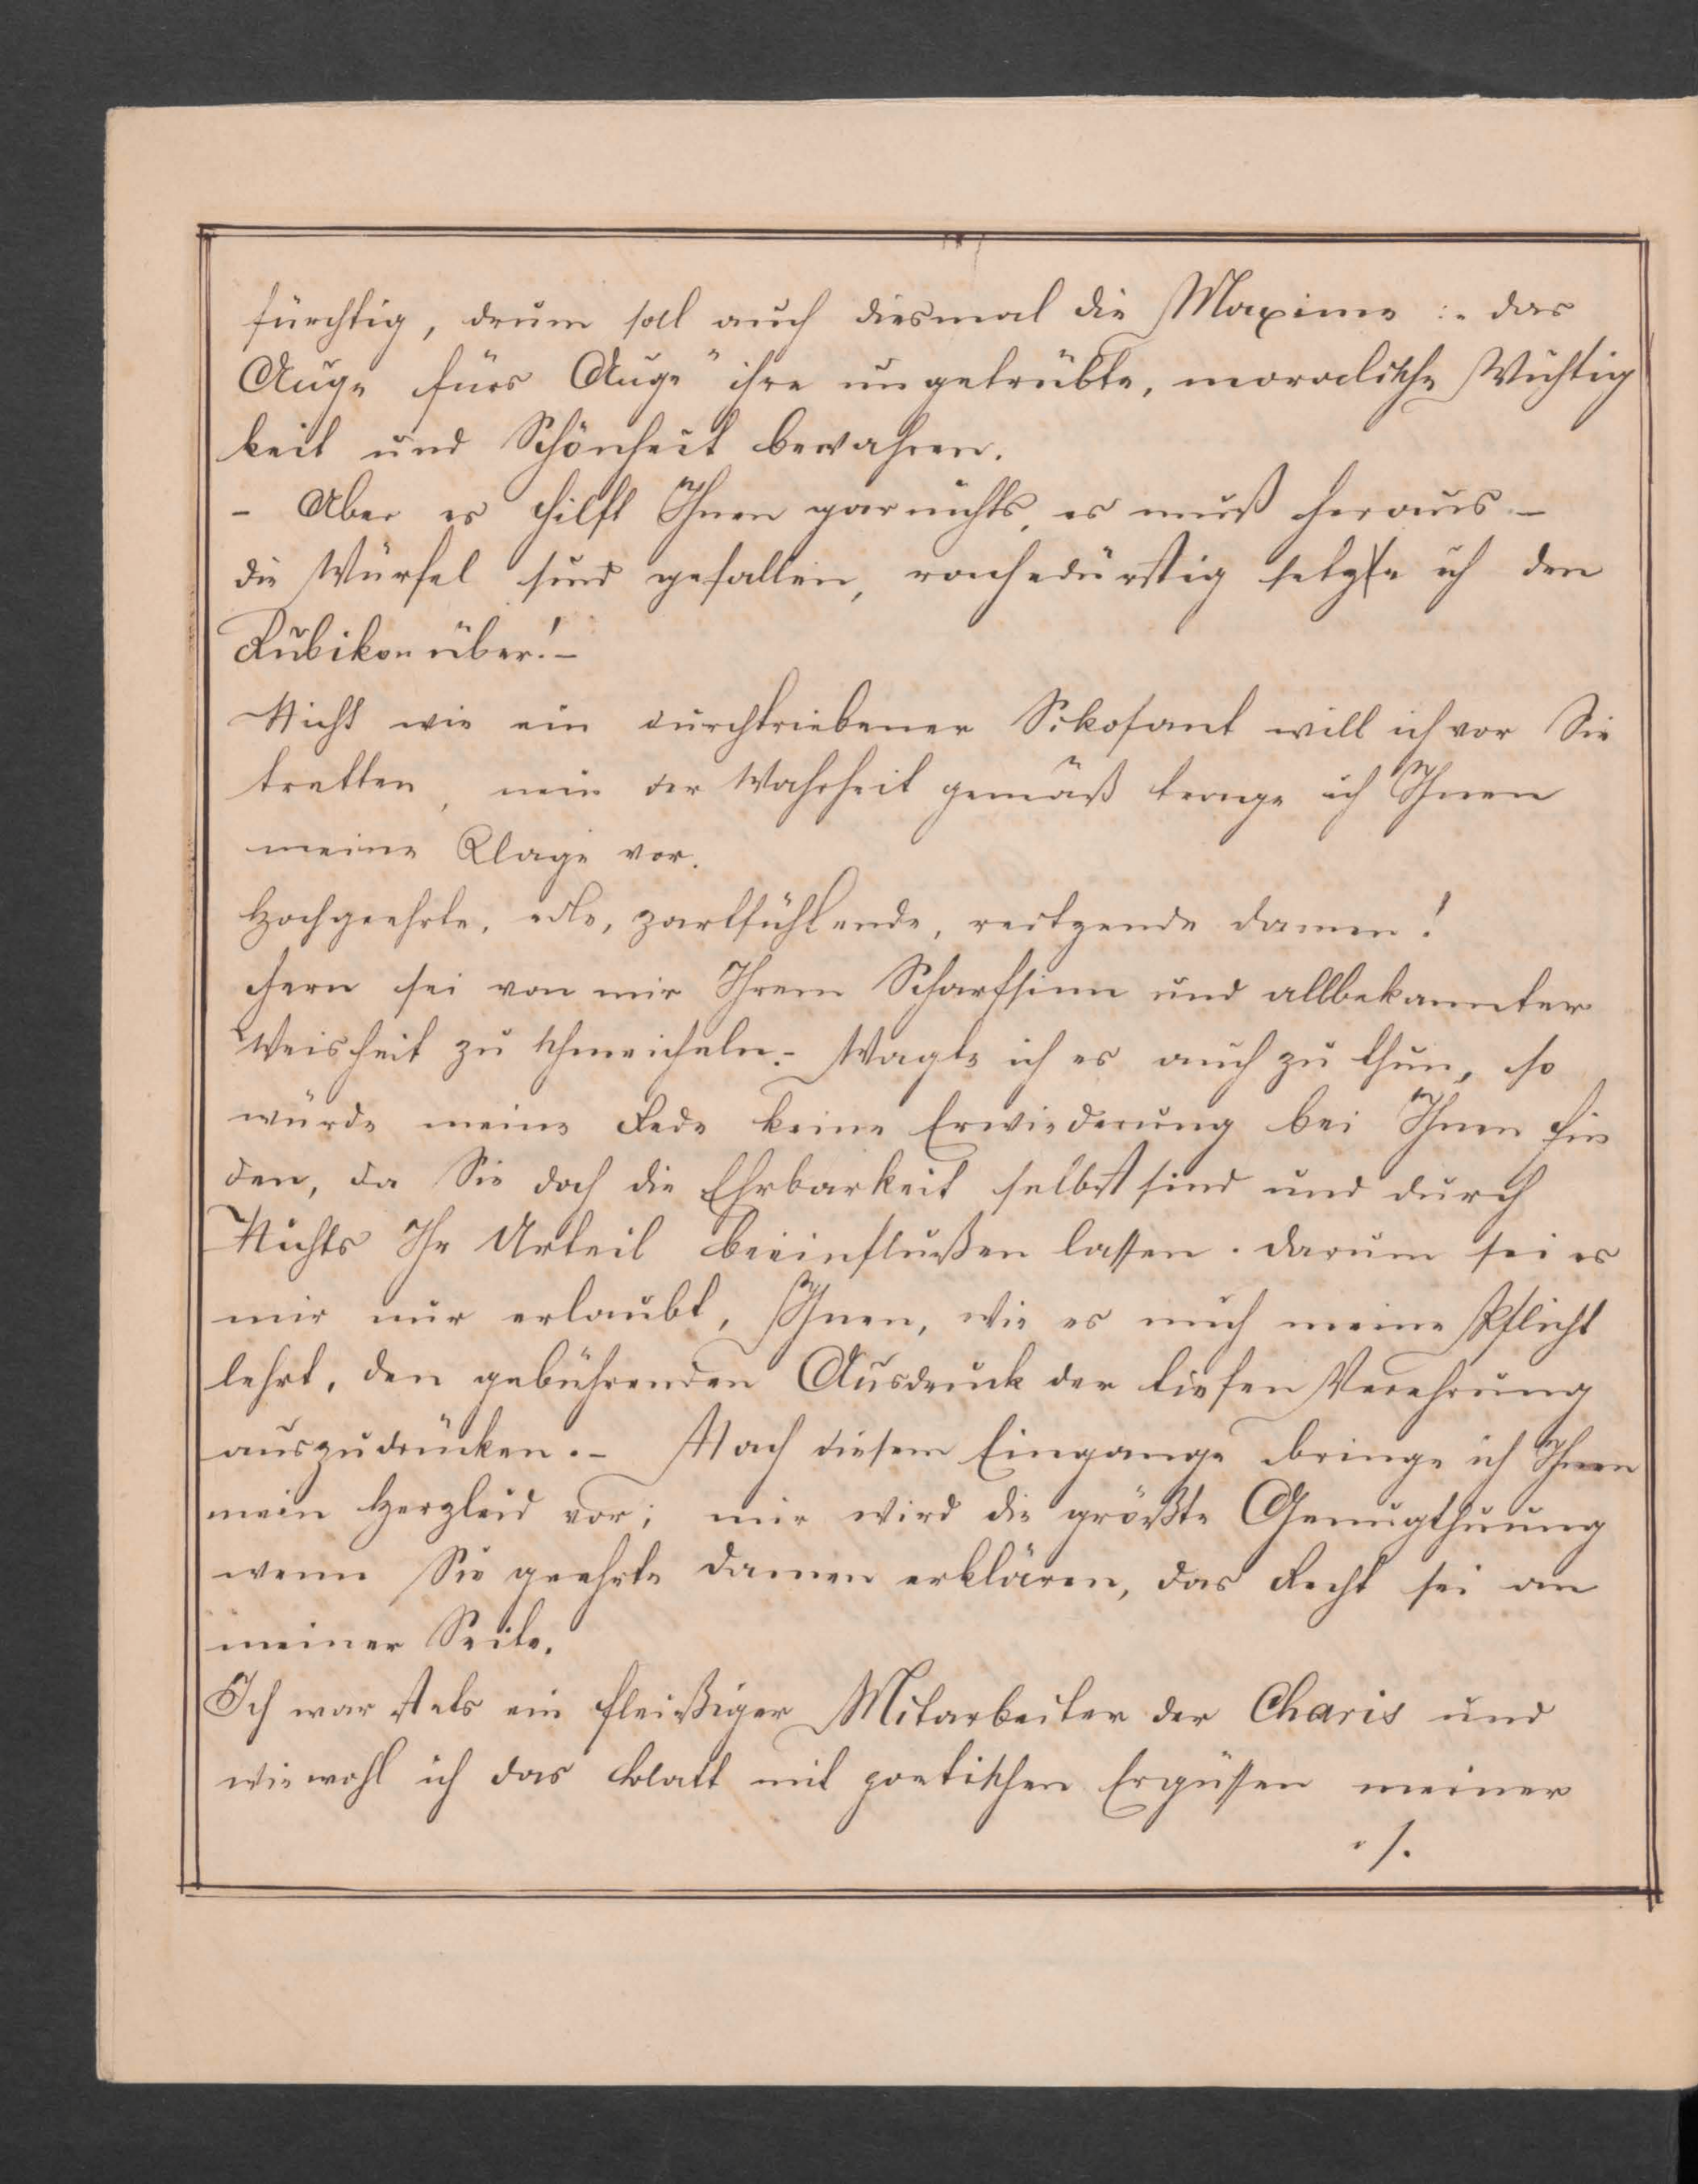 fürchtig, drum soll auch diesmal die Maxime :„ das
Auge fürs Auge" ihre ungetrübte, moralische Wichtig
keit und Schönheit bewahren.
- Aber es hilft Ihnen gar nichts, es muß heraus –
die Würfel sind gefallen, rachedürstig setzte ich den
Rubikon über! –
Nicht wie ein durchtriebener Sikofant will ich vor Sie
tretten, nein der Wahrheit gemäß trage ich Ihnen
meine Klage vor.
Hochgeehrte, edle, zartfühlende, reitzende Damen!
Fern sei von mir Ihrem Scharfsinn und allbekannter
Weisheit zu schmeicheln. – Wagte ich es auch zu thun, so
würde meine Rede keine Erwiederung bei Ihnen fin
den, da Sie doch die Ehrbarkeit selbst sind und durch
Nichts Ihr Urteil beeinflußen lassen. Darum sei es
mir nur erlaubt, Ihnen, wie es mich meine Pflicht
lehrt, den gebührenden Ausdruck der tiefen Verehrung
auszudrücken. – Nach diesem Eingange bringe ich Ihnen
mein Herzleid vor; mir wird die größte Genugthuung
wenn Sie geehrte Damen erklären, das Recht sei an
meiner Seite.
Ich war stets ein fleißiger Mitarbeiter der Charis und
wiewohl ich das Blatt mit poetischen Ergüssen meiner
./.